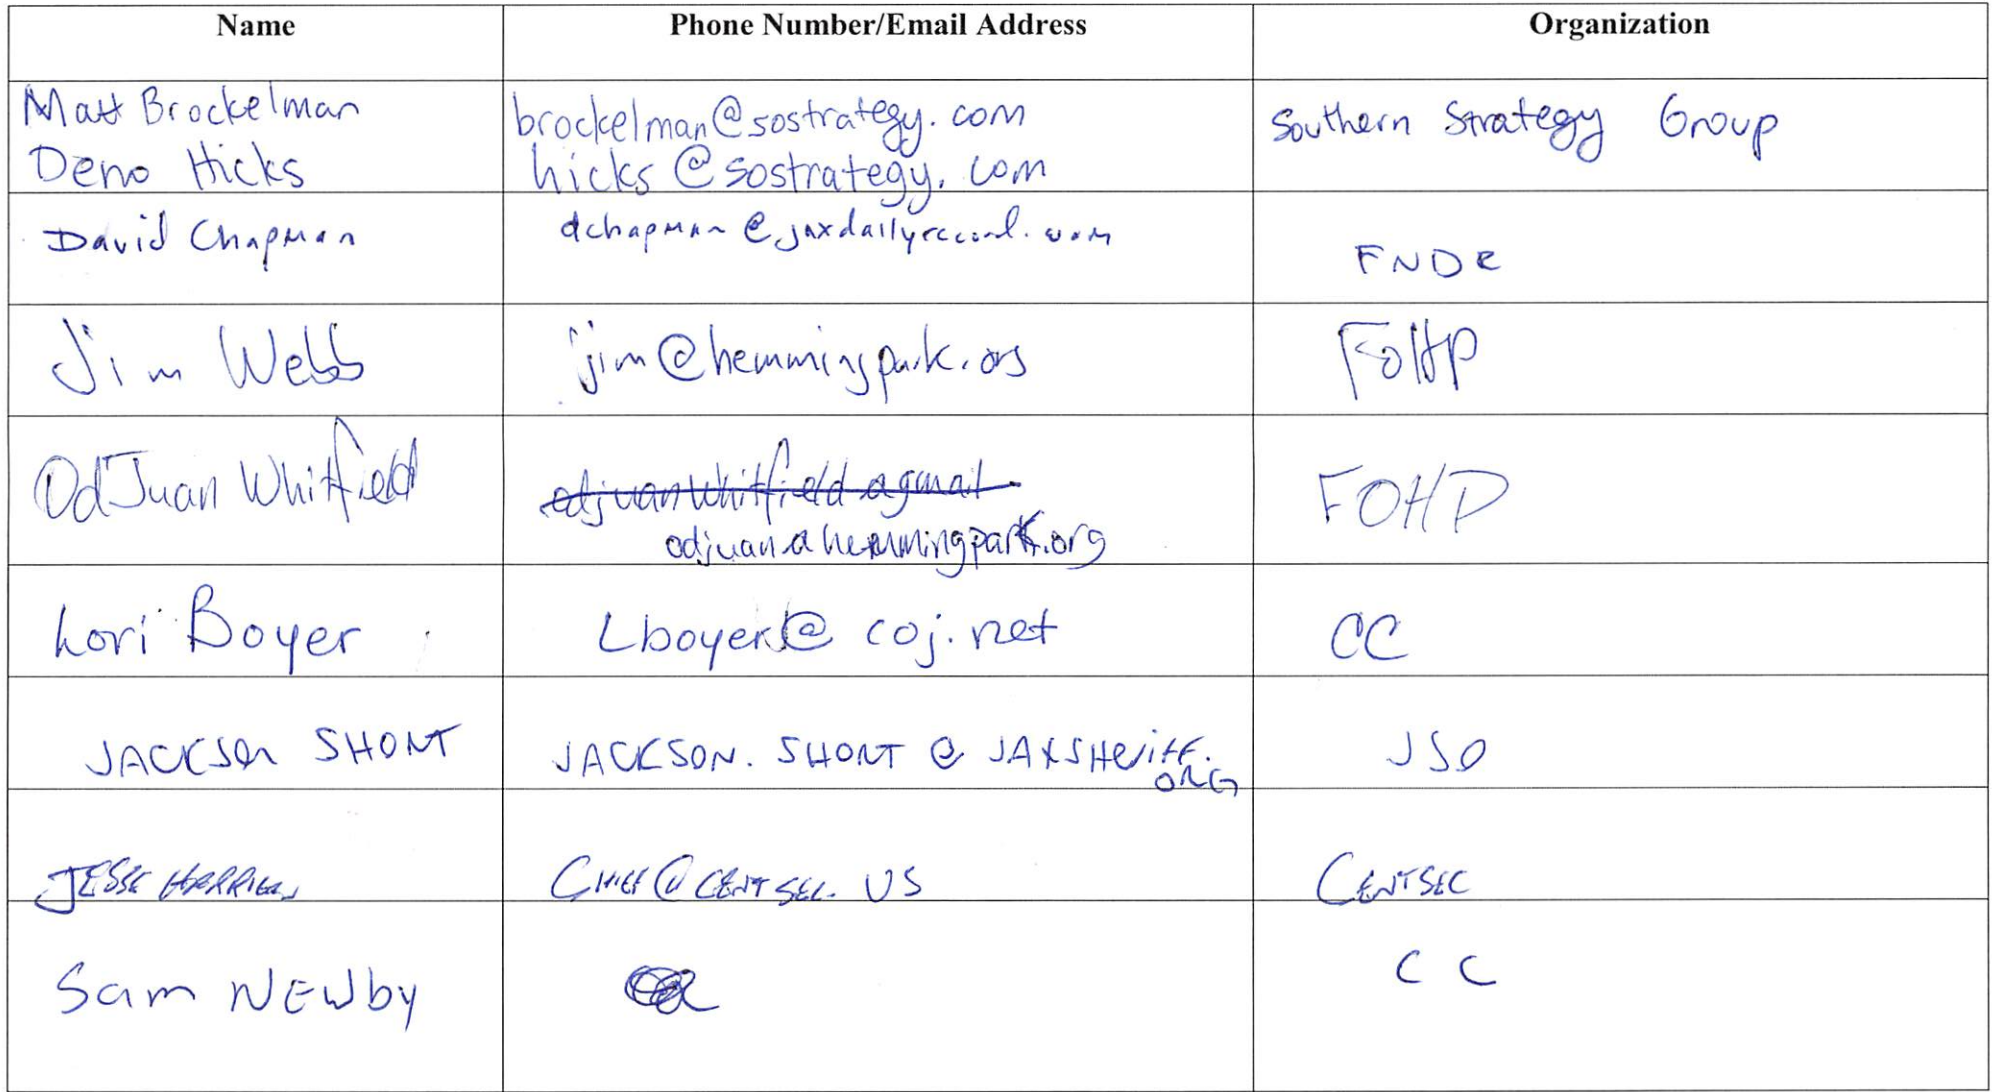 Name Phone Number/Email Address Organization
Matt Brockelman brockelman@sostrategy.com Southern Strategy Group
Deno Hicks hicks@sostrategy.com
David Chapman dchapman@jaxdailyrecord.com FNDR
Jim Webb jim@hemmingpark.org FoHP
OdJuan Whitfield odjuanwhitfield@gmail FOHP
odjuan@hemmingpark.org
Lori Boyer Lboyer@coj.net CC
JACKSON SHORT JACKSON.SHORT@JAXSHERIFF. JSO
ORG
JESSE CHIEF@CENTSEC.US CENTSEC
Sam NEWby CC